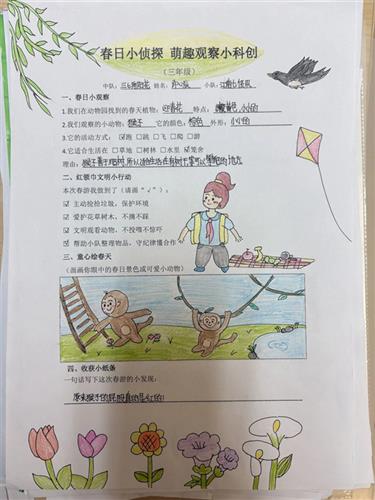 春日小侦探 萌趣观察小科创
（三年级）
中队： 姓名： 小队：
一、春日小观察
1.我们在动物园找到的春天植物：迎春花 特点：嫩黄色,小小的
2.我们观察的小动物：猴子 它的颜色：棕色 外形：小小的
3.它的活动方式：☑跑 □跳 □飞 □爬 □游
4.它适合生活在 □草地 □树林 □水里 ☑笼舍
理由：猴子善于
二、红领巾文明小行动
本次春游我做到了（请画“√”）：
☑ 主动捡拾垃圾，保护环境
☑ 爱护花草树木，不摘不踩
☑ 文明观看动物，不投喂不惊吓
☑ 帮助小队整理物品，守纪律懂合作
三、童心绘春天
（画画你眼中的春日景色或可爱小动物）
四、收获小纸条
一句话写下这次春游的小发现：
原来猴子的屁股真的是红的！